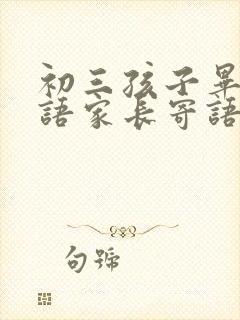 初三孩子畢
語家長寄語
句號